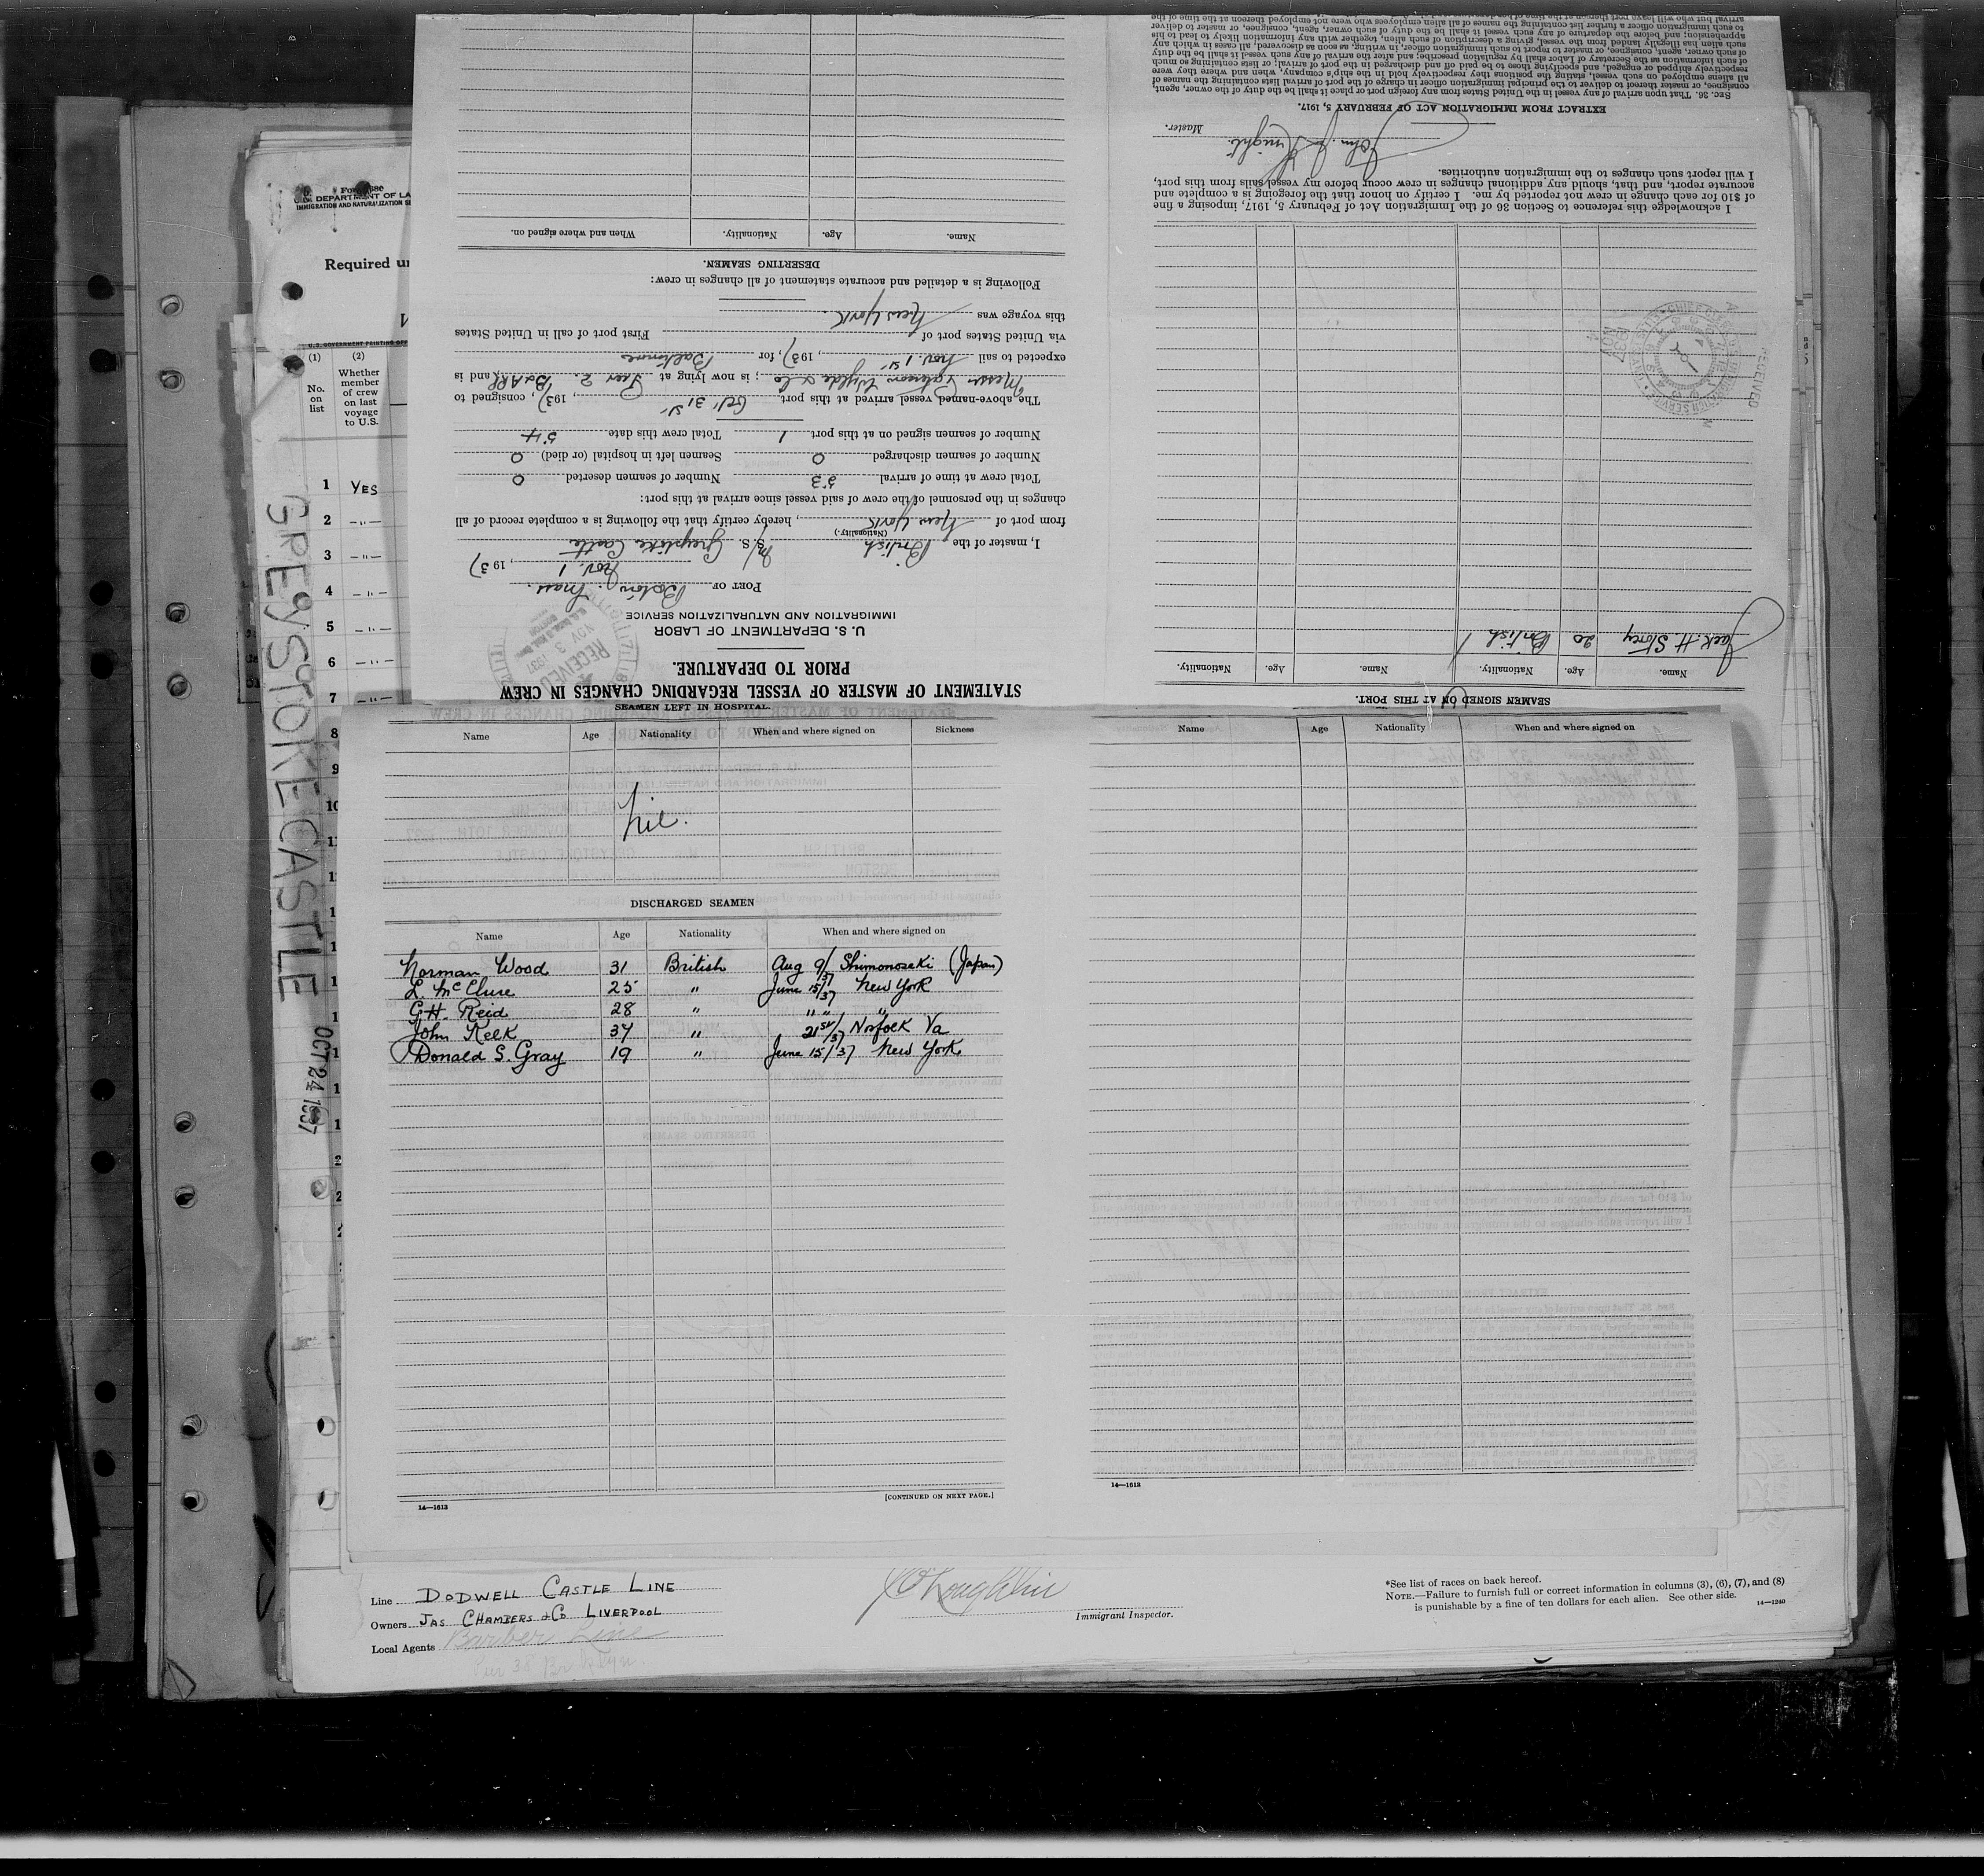 Form 680
U.S. DEPARTMENT OF LA
IMMIGRATION AND NATURALIZATION SE
Required un
U.S. GOVERNMENT PRINTING OF
(1)
No.
on
list
(2)
Whether
member
of crew
on last
voyage
to U.S.
1 YES
2 -"-
3 -"-
4 -"-
5 -"-
6 -"-
7
8
9
10
GREYSTOKE CASTLE
OCT 24 1937
STATEMENT OF MASTER OF VESSEL REGARDING CHANGES IN CREW
PRIOR TO DEPARTURE.
U. S. DEPARTMENT OF LABOR
IMMIGRATION AND NATURALIZATION SERVICE
RECEIVED
NOV 3 1937
PORT OF Boston, Mass.
Nov. 1, 1937
I, master of the British M/S. S. Greystoke Castle
(Nationality.)
from port of New York, hereby certify that the following is a complete record of all
changes in the personnel of the crew of said vessel since arrival at this port:
Total crew at time of arrival 53 Number of seamen deserted 0
Number of seamen discharged 0 Seamen left in hospital (or died) 0
Number of seamen signed on at this port 1 Total crew this date 54
The above-named vessel arrived at this port Oct. 31st, 1937, consigned to
Messrs Patterson Wylde & Co; is now lying at Pier 2. B&ARR, and is
expected to sail Nov. 1st, 1937, for Baltimore
via United States port of First port of call in United States
this voyage was New York.
Following is a detailed and accurate statement of all changes in crew:
DESERTING SEAMEN.
Name. Age. Nationality. When and where signed on.
SEAMEN SIGNED ON AT THIS PORT.
Name. Age. Nationality. Name. Age. Nationality.
Jack H. Storey 20 British
RECEIVED
I acknowledge this reference to Section 36 of the Immigration Act of February 5, 1917, imposing a fine
of $10 for each change in crew not reported by me. I certify on honor that the foregoing is a complete and
accurate report, and that, should any additional changes in crew occur before my vessel sails from this port,
I will report such changes to the immigration authorities.
John J Knight.
Master.
EXTRACT FROM IMMIGRATION ACT OF FEBRUARY 5, 1917.
Sec. 36. That upon arrival of any vessel in the United States from any foreign port or place it shall be the duty of the owner, agent,
consignee, or master thereof to deliver to the principal immigration officer in charge of the port of arrival lists containing the names of
all aliens employed on such vessel, stating the positions they respectively hold in the ship's company, when and where they were
respectively shipped or engaged, and specifying those to be paid off and discharged in the port of arrival; or lists containing so much
of such information as the Secretary of Labor shall by regulation prescribe; and after the arrival of any such vessel it shall be the duty
of such owner, agent, consignee, or master to report to such immigration officer, in writing, as soon as discovered, all cases in which any
such alien has illegally landed from the vessel, giving a description of such alien, together with any information likely to lead to his
apprehension; and before the departure of any such vessel it shall be the duty of such owner, agent, consignee, or master to deliver
to such immigration officer a further list containing the names of all alien employees who were not employed thereon at the time of the
SEAMEN LEFT IN HOSPITAL.
Name Age Nationality When and where signed on Sickness
Nil.
DISCHARGED SEAMEN
Name Age Nationality When and where signed on
Norman Wood 31 British Aug 9/37 Shimonoseki (Japan)
L. McClure 25 " June 15/37 New York
G.H. Reid 28 " " " "
John Kelk 34 " 21st/37 Norfolk Va
Donald S. Gray 19 " June 15/37 New York
14—1613
[CONTINUED ON NEXT PAGE.]
Name Age Nationality When and where signed on
14—1613
Line DODWELL CASTLE LINE
Owners JAS CHAMBERS & CO LIVERPOOL
Local Agents Barber Line
Pier 38 Brooklyn.
O'Loughlin
Immigrant Inspector.
*See list of races on back hereof.
NOTE.—Failure to furnish full or correct information in columns (3), (6), (7), and (8)
is punishable by a fine of ten dollars for each alien. See other side.
14—1240